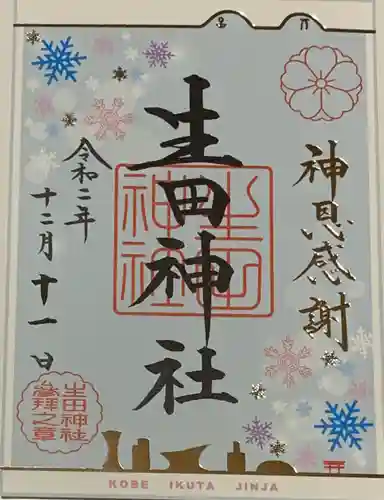 神恩感謝
生田神社
生田神社
令和二年
十二月十一日
生田神社
参拝之章
KOBE IKUTA JINJA